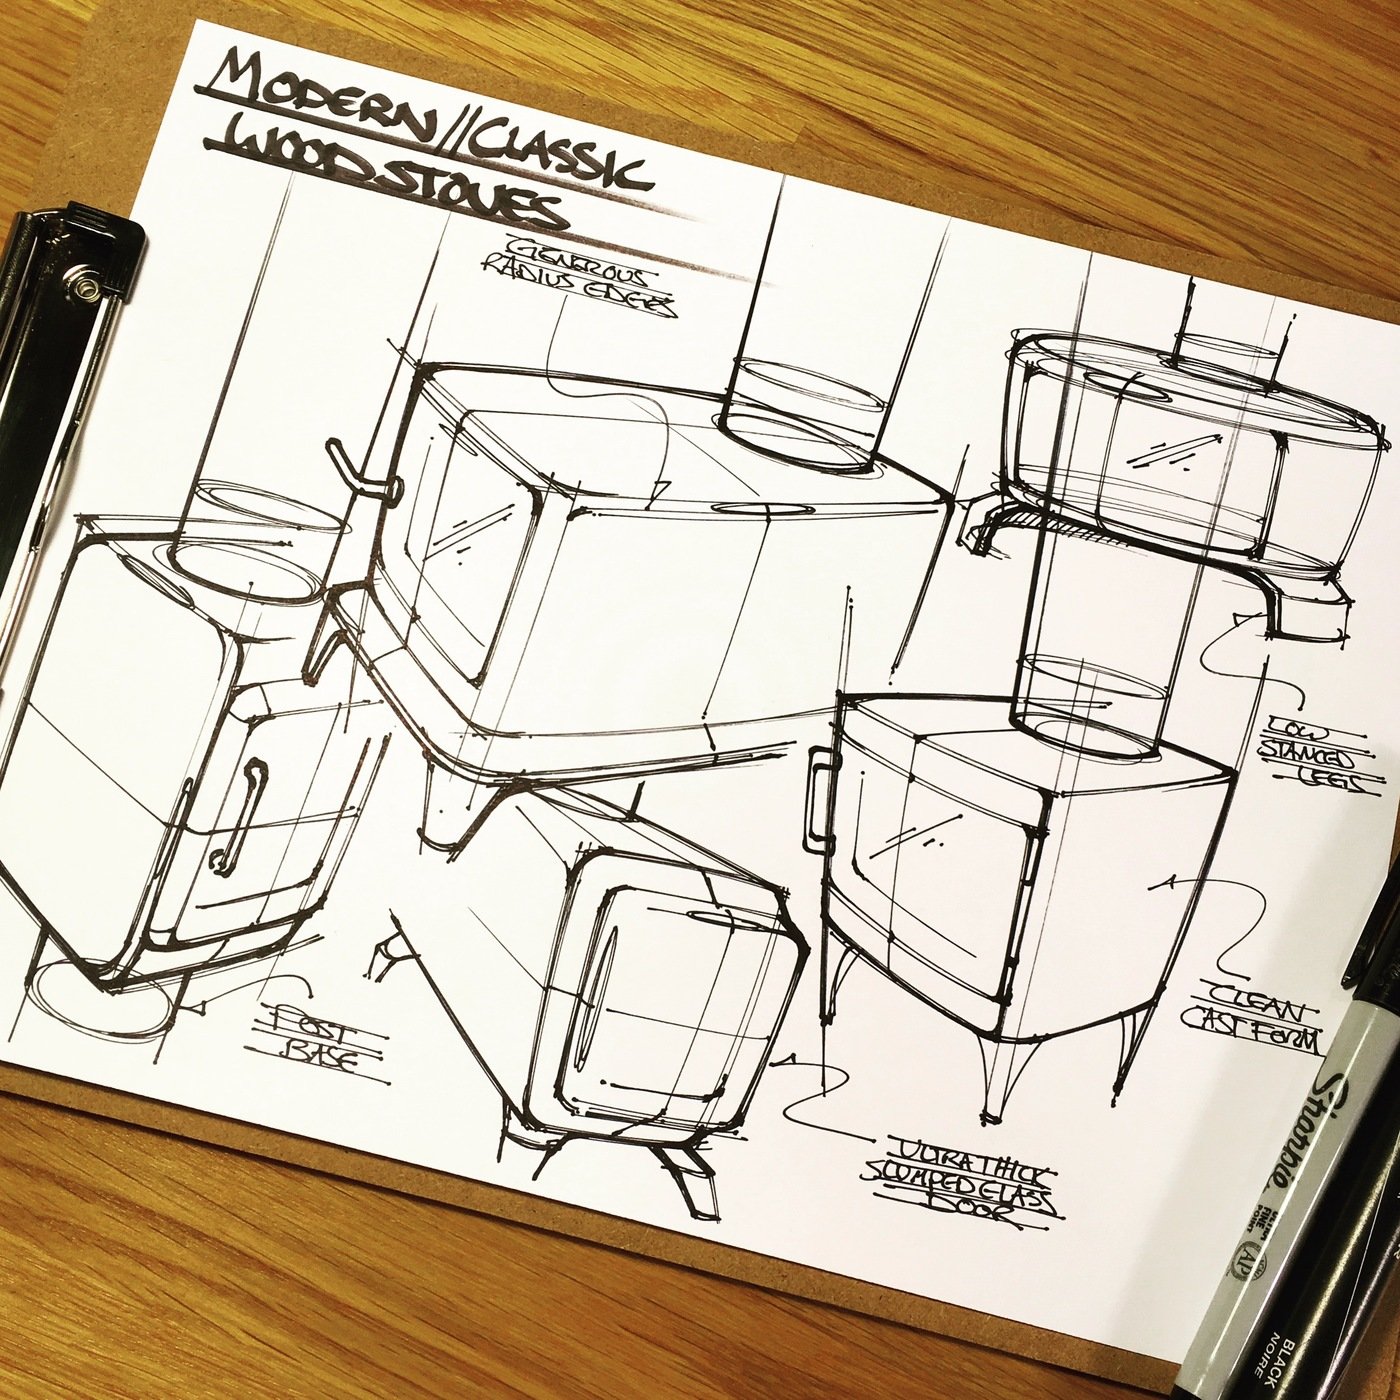 MODERN//CLASSIC
WOODSTOVES
GENEROUS
RADIUS EDGES
LOW
STANCED
LEGS
CLEAN
CAST FORM
POST
BASE
ULTRA THICK
SLUMPED GLASS
DOOR
Sharpie
ULTRA
FINE
POINT
AP
BLACK
NOIRE